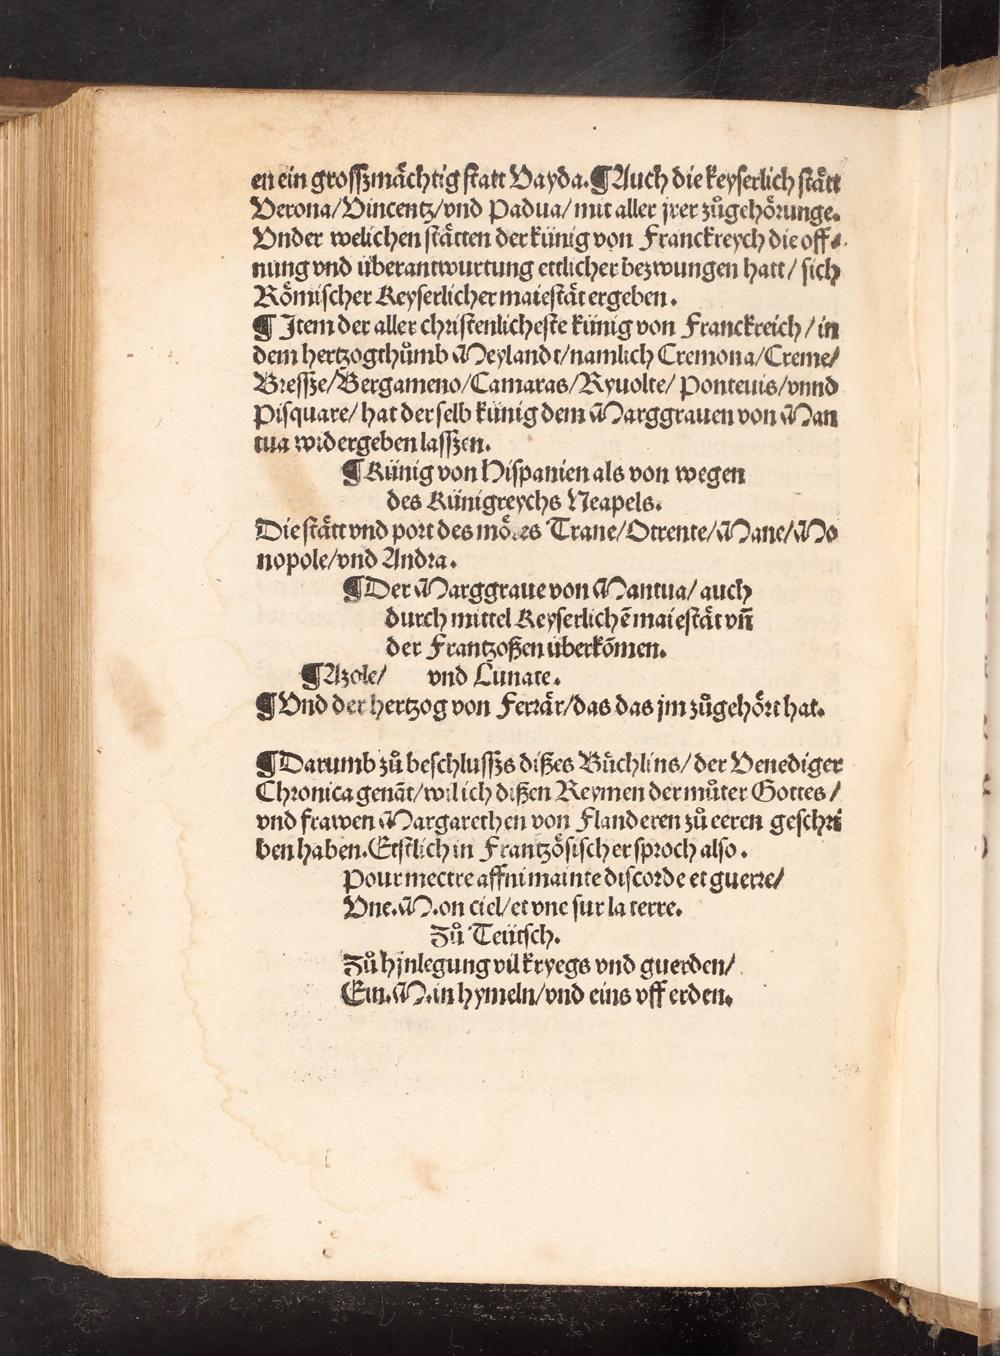 en ein grosszmächtig statt Vayda. ¶Auch die keyserlich stått
Verona/Vincentz/vnd Padua/ mit aller jrer zůgehörunge.
Vnder welichen stätten der künig von Franckreych die off-
nung vnd überantwurtung ettlicher bezwungen hatt/ sich
Römischer Keyserlicher maiestät ergeben.
¶ Item der aller christenlicheste künig von Franckreich/in
dem hertzogthůmb Meylandt/namlich Cremona/Creme/
Bressze/Bergameno/Camaras/Ryuolte/ Ponteuis/vnnd
Pisquare/ hat der selb künig dem Marggrauen von Man
tua widergeben lasszen.
¶Künig von Hispanien als von wegen
des Künigreychs Neapels.
Die stätt vnd port des möres Trane/Otrente/Mane/Mo
nopole/vnd Andra.
¶Der Marggraue von Mantua/ auch
durch mittel Keyserlichē maiestät vn̄
der Frantzoßen überkōmen.
¶Azole/ vnd Lunate.
¶Vnd der hertzog von Ferrär/das das jm zůgehört hat.
¶Darumb zů beschlussz dißes Büchlins/ der Venediger
Chronica genāt/wil ich dißen Reymen der můter Gottes/
vnd frawen Margarethen von Flanderen zů eeren geschri
ben haben. Erstlich in Frantzösischer sproch also.
Pour mectre affni mainte discorde et guerre/
Vne. M. on ciel/et vne sur la terre.
Zů Teütsch.
Zů hjnlegung vil kryegs vnd guerden/
Ein. M. in hymeln/vnd eins vff erden.